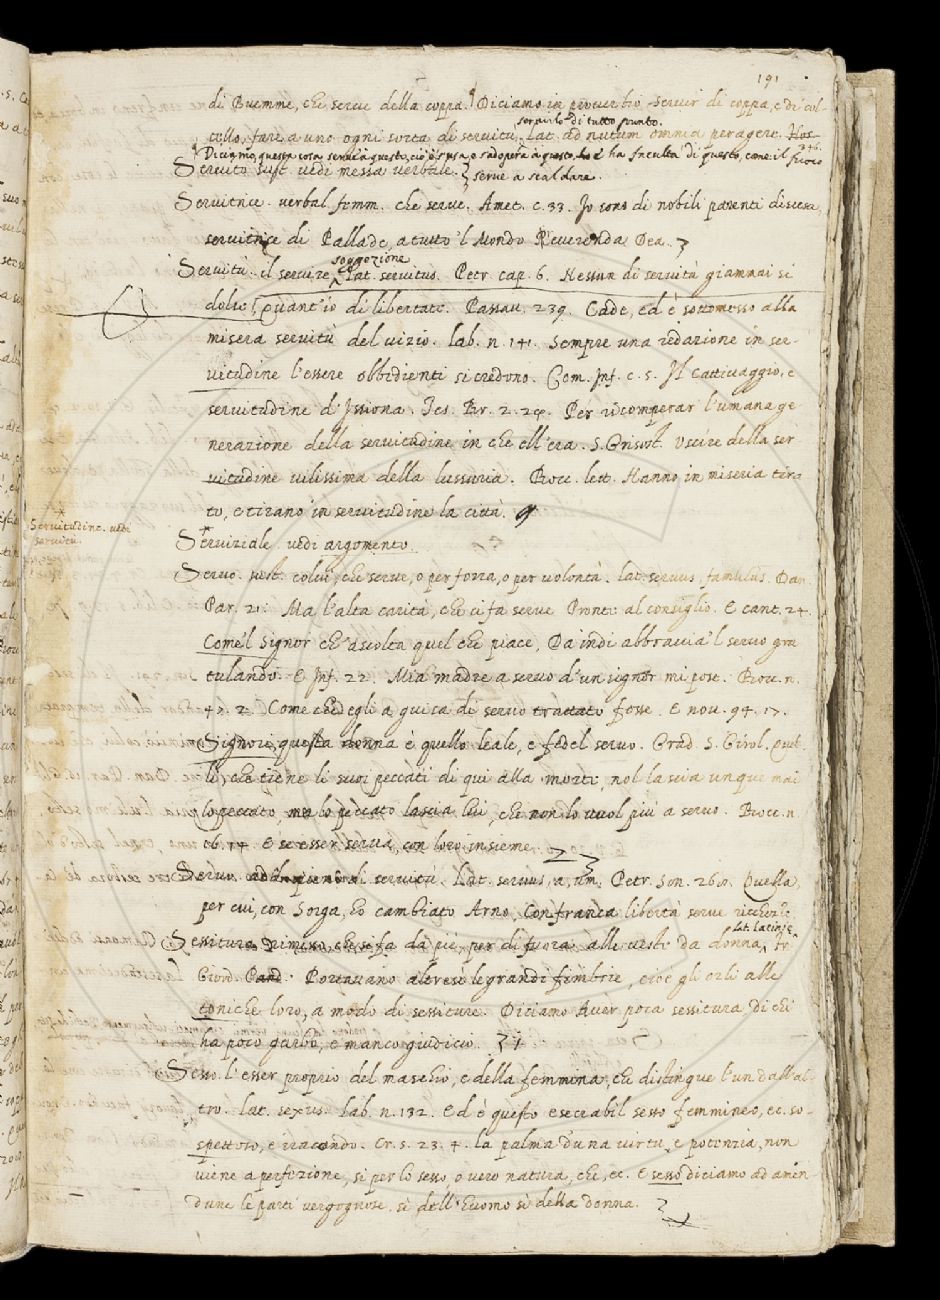 191
di Buemme, che serve della coppa. Diciamo in proverbio servir di coppa, e di col-
servirlo di tutto punto.
tello, fare a uno ogni sorta di servitù, Lat. ad nutum omnia peragere.
Diciamo, questa cosa serve a questo, cioè s'usa, o s'adopera a questo, ha faculta di questo, come il fuoco
Servito sust. vedi messa verbale. serve a scaldare.
Servitrice. verbal femm. che serve. Amet. c. 33. Io sono di nobili parenti discesa,
servitrice di Pallade, a tutto 'l Mondo Reverenda Dea.
soggezione
Servitù. il servire, Lat. servitus. Petr. cap. 6. Nessun di servitù giammai si
dolse, quant' io di libertate. Passav. 239. Cade, ed è sottomesso alla
misera servitù del vizio. Lab. n. 141. Sempre una redazione in ser-
vitudine l'essere obbidienti si credono. Com. Inf. c. 5. Il cattivaggio, e
servitudine d'Issiona. Tes. Br. 2. Per ricomperar l'umana ge
nerazione della servitudine in che ell'era. S. Grisost. Uscire della ser
vitudine vilissima della lussuria. Bocc. lett. Hanno in miseria tira
to, e tirano in servitudine la città.
Servitudine. vedi
servitù.
Serviziale. vedi argomento
Servo. sust. colui, che serve, o per forza, o per volontà. Lat. servus, famulus. Dan.
Par. 21. Ma l'alta carità, che ci fa serve Pronte al consiglio. E cant. 24.
Come 'l Signor ch'ascolta quel che piace, Da indi abbraccia 'l servo gra
tulando. E Inf. 22. Mia madre a servo d'un signor mi pose. Bocc. n.
47. 2. Come che egli a guisa di servo trattato fosse. E nov. 94. 17.
Signori, questa donna è quello leale, e fedel servo. Grad. S. Girol.
li, che tiene li suoi peccati di qui alla morte, nol lascia unque mai
lo peccato, ma lo peccato lascia lui, che non lo vuol più a servo. Bocc. n.
E se esser serva, con loro insieme.
Servo. di servitù. Lat. servus, a, um. Petr. Son. 260. Quella,
per cui, con Sorga, ho cambiato Arno, Con franca libertà serve ricchezze.
lat. latinis
Sessitura. rimesso, che si fa da piè, per di fuora alle vesti da donna,
Giord. Pred. Portavano altresì le grandi fimbrie, cioè gli orli alle
toniche loro, a modo di sessiture. Diciamo Aver poca sessitura di chi
ha poco garbo, e manco giudicio.
Sesso. l'esser proprio del maschio, e della femmina, che distingue l'un dall'al-
tro. lat. sexus. Lab. n. 132. Ed è questo esecrabil sesso femmineo, ec. so-
spettoso, e iracondo. Cr. 5. 23. 4. la palma d'una virtù, e potenzia, non
viene a perfezione, si per lo sesso, o vero natura, che, ec. E sesso diciamo ad amen-
dune le parti vergognose, sì dell'Huomo sì della donna.